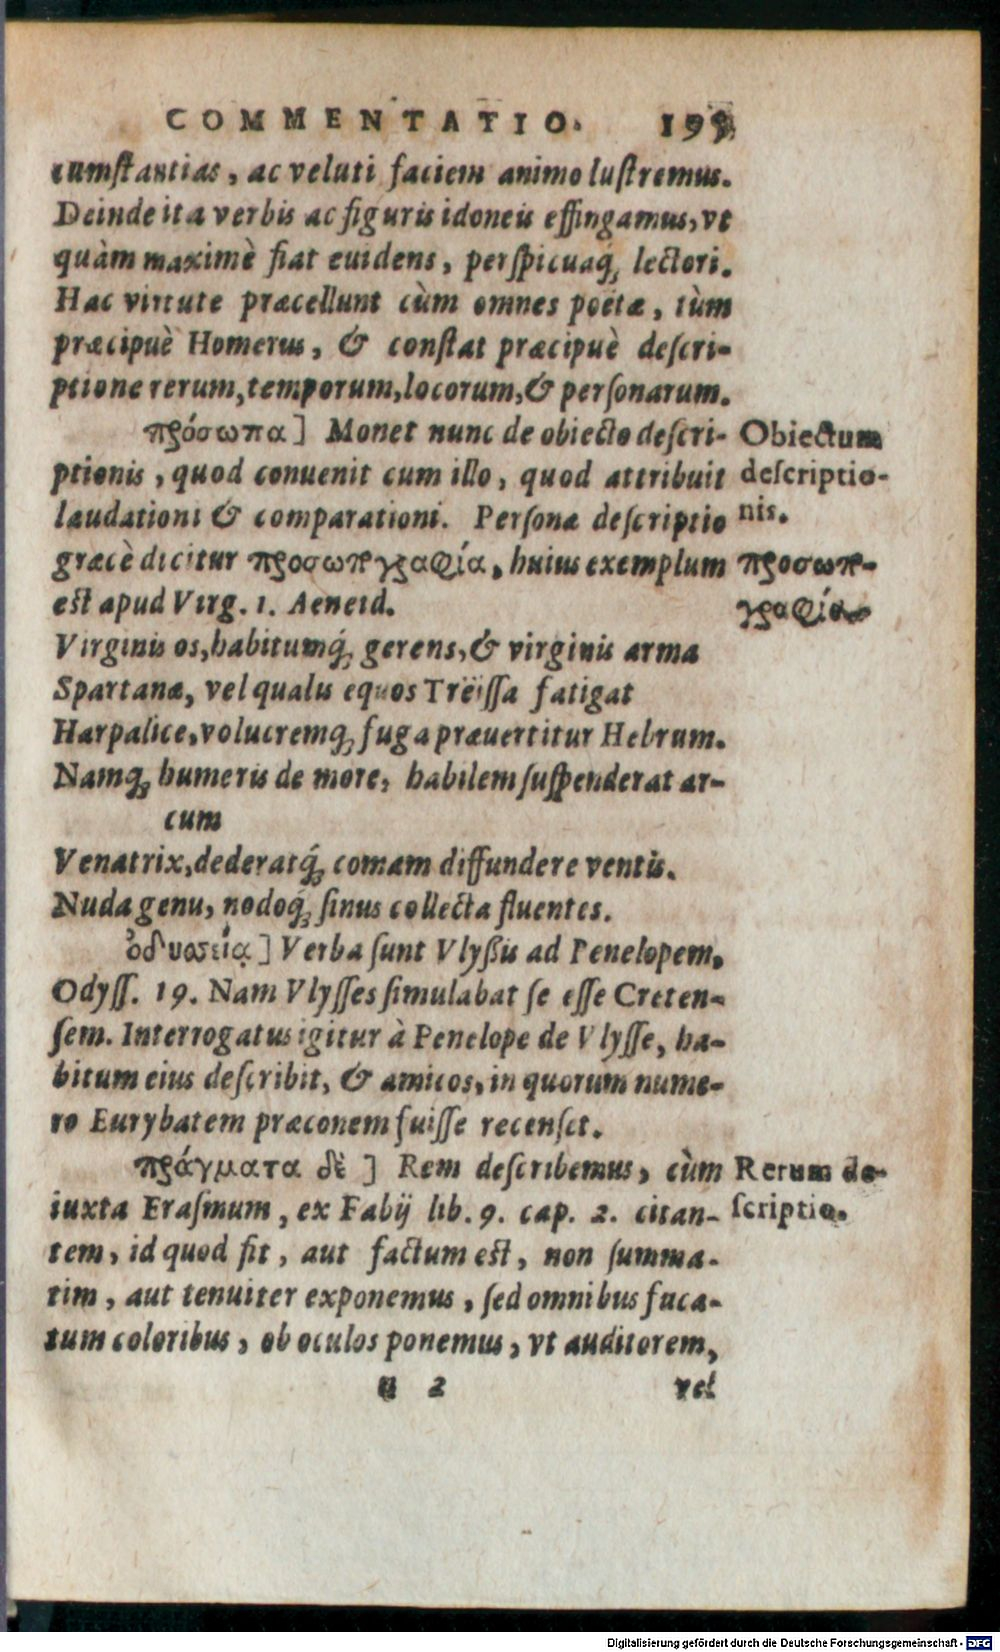 COMMENTATIO. 195
cumſtantias, ac veluti faciem animo luſtremus.
Deinde ita verbis ac figuris idoneis effingamus, vt
quàm maximè fiat euidens, perſpicuaq́; lectori.
Hac virtute præcellunt cùm omnes poëtæ, tùm
præcipuè Homerus, & conſtat præcipuè deſcri-
ptione rerum, temporum, locorum, & perſonarum.
πρόσωπα] Monet nunc de obiecto deſcri-
Obiectum
ptionis, quod conuenit cum illo, quod attribuit
deſcriptio-
laudationi & comparationi. Perſonæ deſcriptio
nis.
græcè dicitur προσωπογραφία, huius exemplum
προσωπο-
est apud Virg. 1. Aeneid.
γραφία
Virginis os, habitumq́; gerens, & virginis arma
Spartanæ, vel qualis equos Trëiſſa fatigat
Harpalice, volucremq; fuga præuertitur Hebrum.
Namq; humeris de more, habilem ſuſpenderat ar-
cum
Venatrix, dederatq́; comam diffundere ventis.
Nuda genu, nodoq́; ſinus collecta fluentes.
ὀδυσσείᾳ] Verba ſunt Vlyßis ad Penelopem,
Odyſſ. 19. Nam Vlyſſes ſimulabat ſe eſſe Creten-
ſem. Interrogatus igitur à Penelope de Vlyſſe, ha-
bitum eius deſcribit, & amicos, in quorum nume-
ro Eurybatem præconem fuiſſe recenſet.
πράγματα δὲ] Rem deſcribemus, cùm
Rerum de-
iuxta Eraſmum, ex Fabij lib. 9. cap. 2. citan-
ſcriptio.
tem, id quod fit, aut factum est, non ſumma-
tim, aut tenuiter exponemus, ſed omnibus fuca-
tum coloribus, ob oculos ponemus, vt auditorem,
2
vel
Digitalisierung gefördert durch die Deutsche Forschungsgemeinschaft - DFG